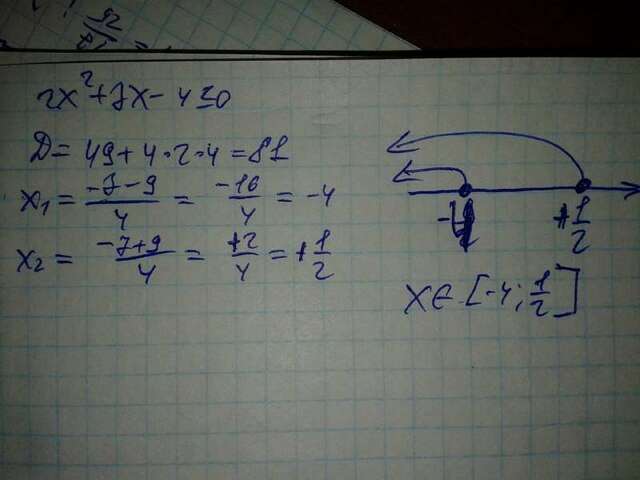 2x²+7x-4≤0
D=49+4·2·4=81
x₁=(-7-9)/4=-16/4=-4
x₂=(-7+9)/4=+2/4=+1/2
-4 +1/2
x∈[-4;1/2]